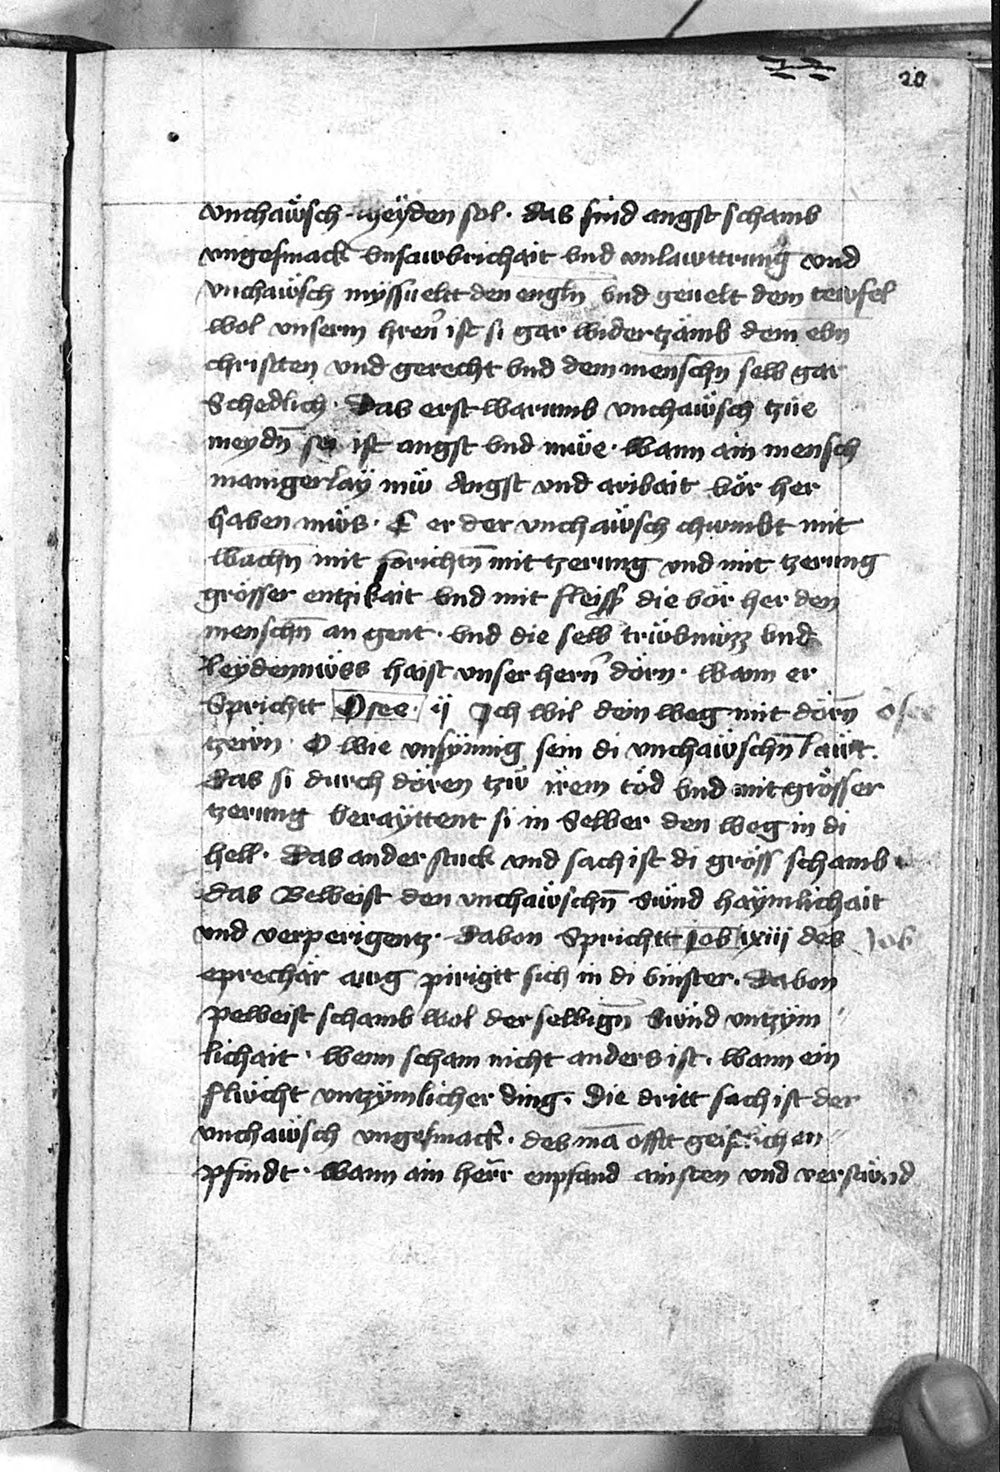 20
vnchaẅsch meÿden sol. das sind angst schamb
vngesmack vnsawbrichait vnd vnlawttrung vnd
vnchaẅsch mÿssuelt den engln̄ vnd geuelt dem tewfel
wol vnserm hren̄ ist si gar widertzämb dem ebn̄
christten vnd gerecht vnd dem menschn̄ selb gar
Schedlich. Das erst warumb vnchaẅsch tzüe
meydn̄ sei ist angst vnd müe. wann ain mensch
manigerlaÿ mẅ Angst vnd aribait vör her
haben mẅs. E er der vnchaẅsch chumbt mit
wachn̄ mit vorichtn̄ mit tzerung vnd mit tzerung
grösser entzikait vnd mit fleiss die vör her den
menschn̄ an gent. vnd die selb trẅbnüzz vnd
Leÿdennüss haist vnser hern̄ dörn. wann er
Sprichtt Osee. ij Ich wil dein weg mit dörn̄
osee
tzewn. O wie vnsÿnnig sein di vnchaẅschn̄ lawt.
das si durch dören tzẅ irem töd vnd mit grösser
tzerung berayttent si in selber den weg in di
hell. Das ander stuck vnd sach ist di gröss schamb
das Beweist den vnchaẅschn̄ Sẅnd haÿmlichait
vnd verperigentz. dabon Sprichtt iob xxiiij des
Job
eprechär awg pirigtt sich in di vinster. Dabon
peweist schamb wol der selbign̄ Sẅnd vntzÿm
lichait. wenn scham nicht anders ist. wann ein
flẅcht vntzÿmlicher ding. Die dritt sach ist der
vnchaẅsch vngesmack. des mā offtt geistlich en
pfindt. wann ain her̄r enpfand ainsten vnd verstẅnd